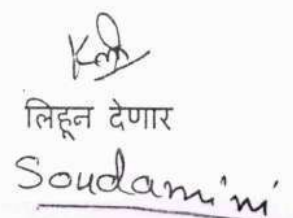 लिहून देणार
Soudamini